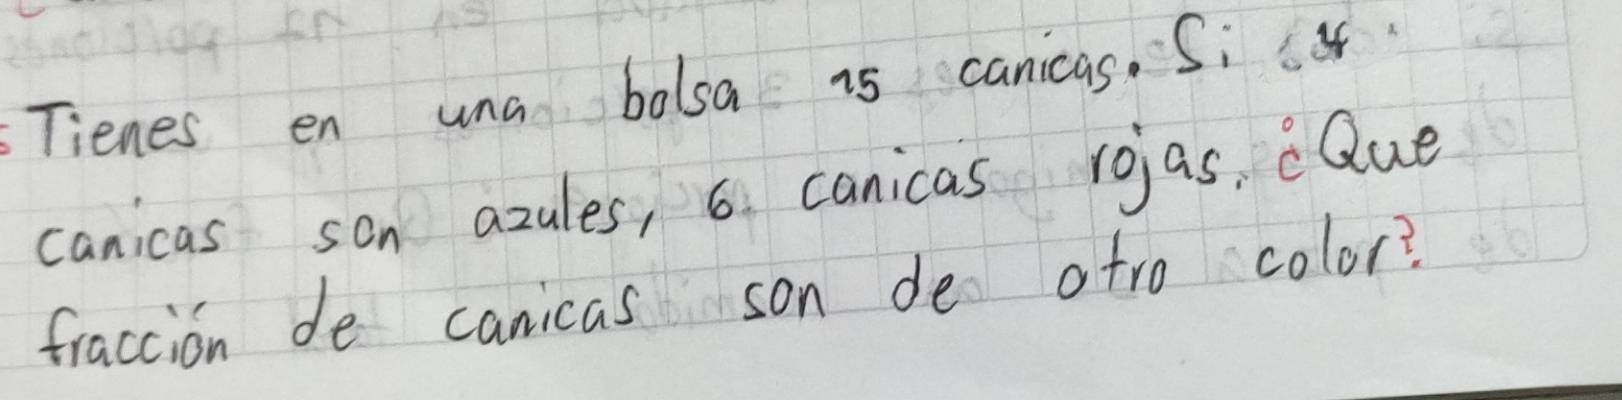 Tienes en una bolsa 15 canicas. Si 4
canicas son azules, 6 canicas rojas. ¿Que
fracción de canicas son de otro color?